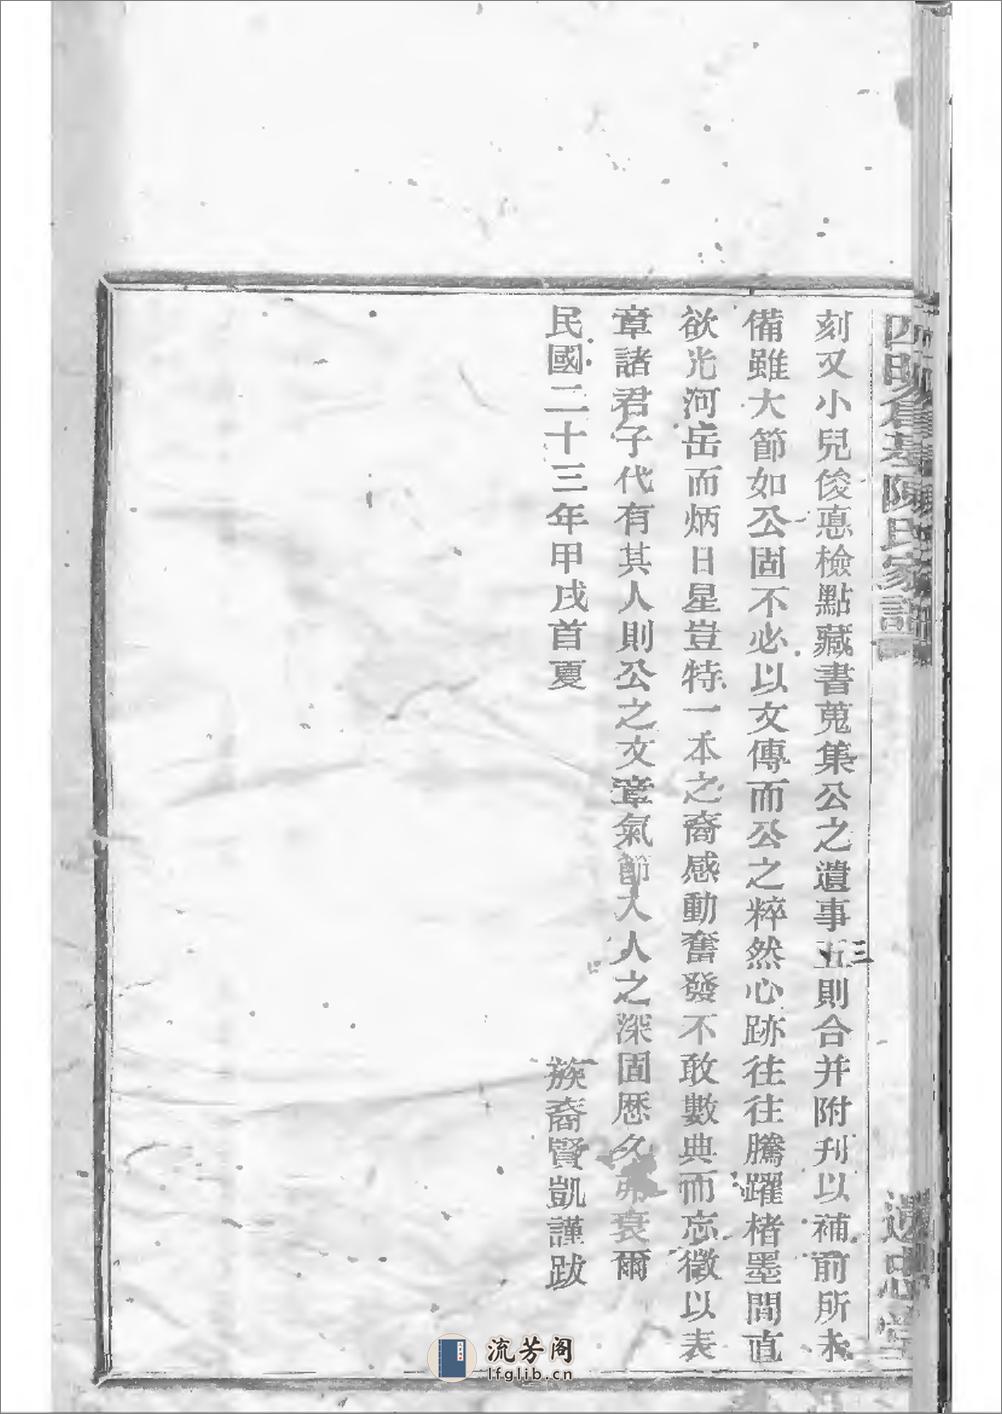 四明倉基陳氏家譜
三
遺忠堂
刻又小兒俊惪檢點藏書蒐集公之遺事五則合并附刊以補前所未
備雖大節如公固不必以文傳而公之粹然心跡往往騰躍楮墨間直
欲光河岳而炳日星豈特一本之裔感動奮發不敢數典而忘徵以表
章諸君子代有其人則公之文章氣節入人之深固歷久而弗衰爾
民國二十三年甲戌首夏
族裔賢凱謹跋
流芳阁
lfglib.cn